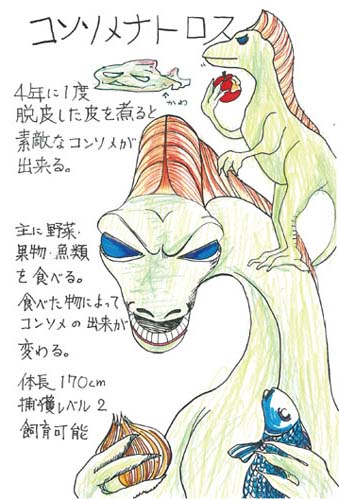 コンソメナトロス
かわ
4年に1度
脱皮した皮を煮ると
素敵なコンソメが
出来る。
主に野菜・
果物・魚類
を食べる。
食べた物によって
コンソメの出来が
変わる。
体長 170cm
捕獲レベル 2
飼育可能